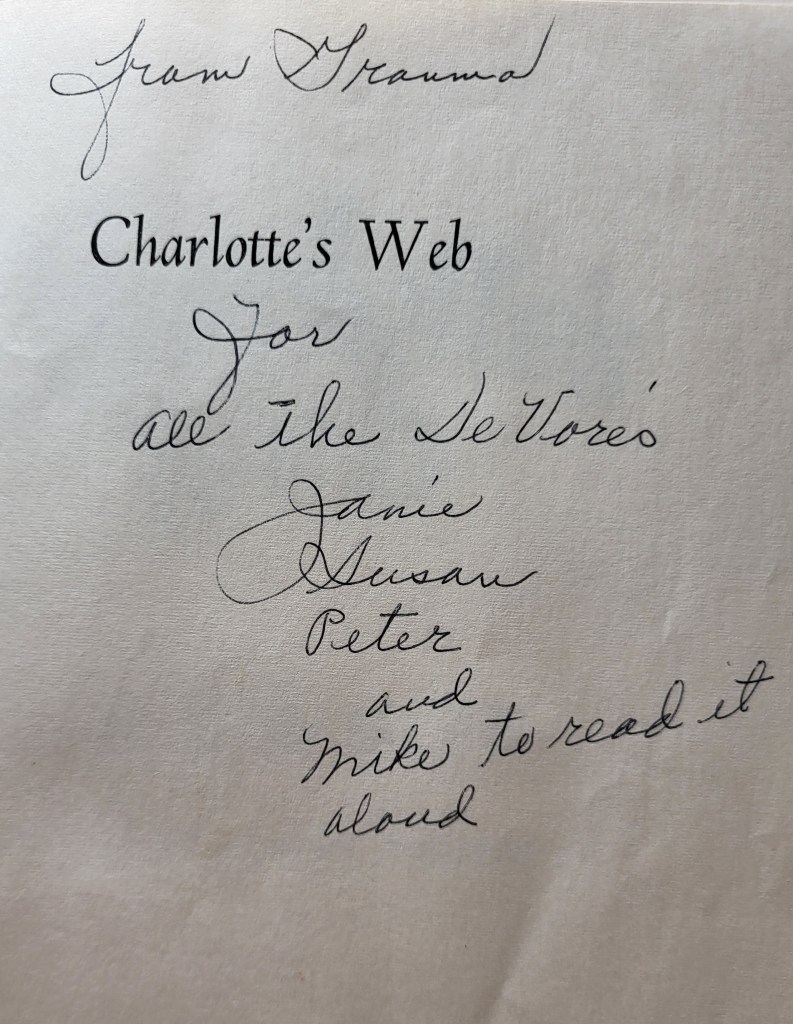 from Gramma
Charlotte's Web
For
all the DeVore's
Janie
Susan
Peter
and
Mike to read it
aloud